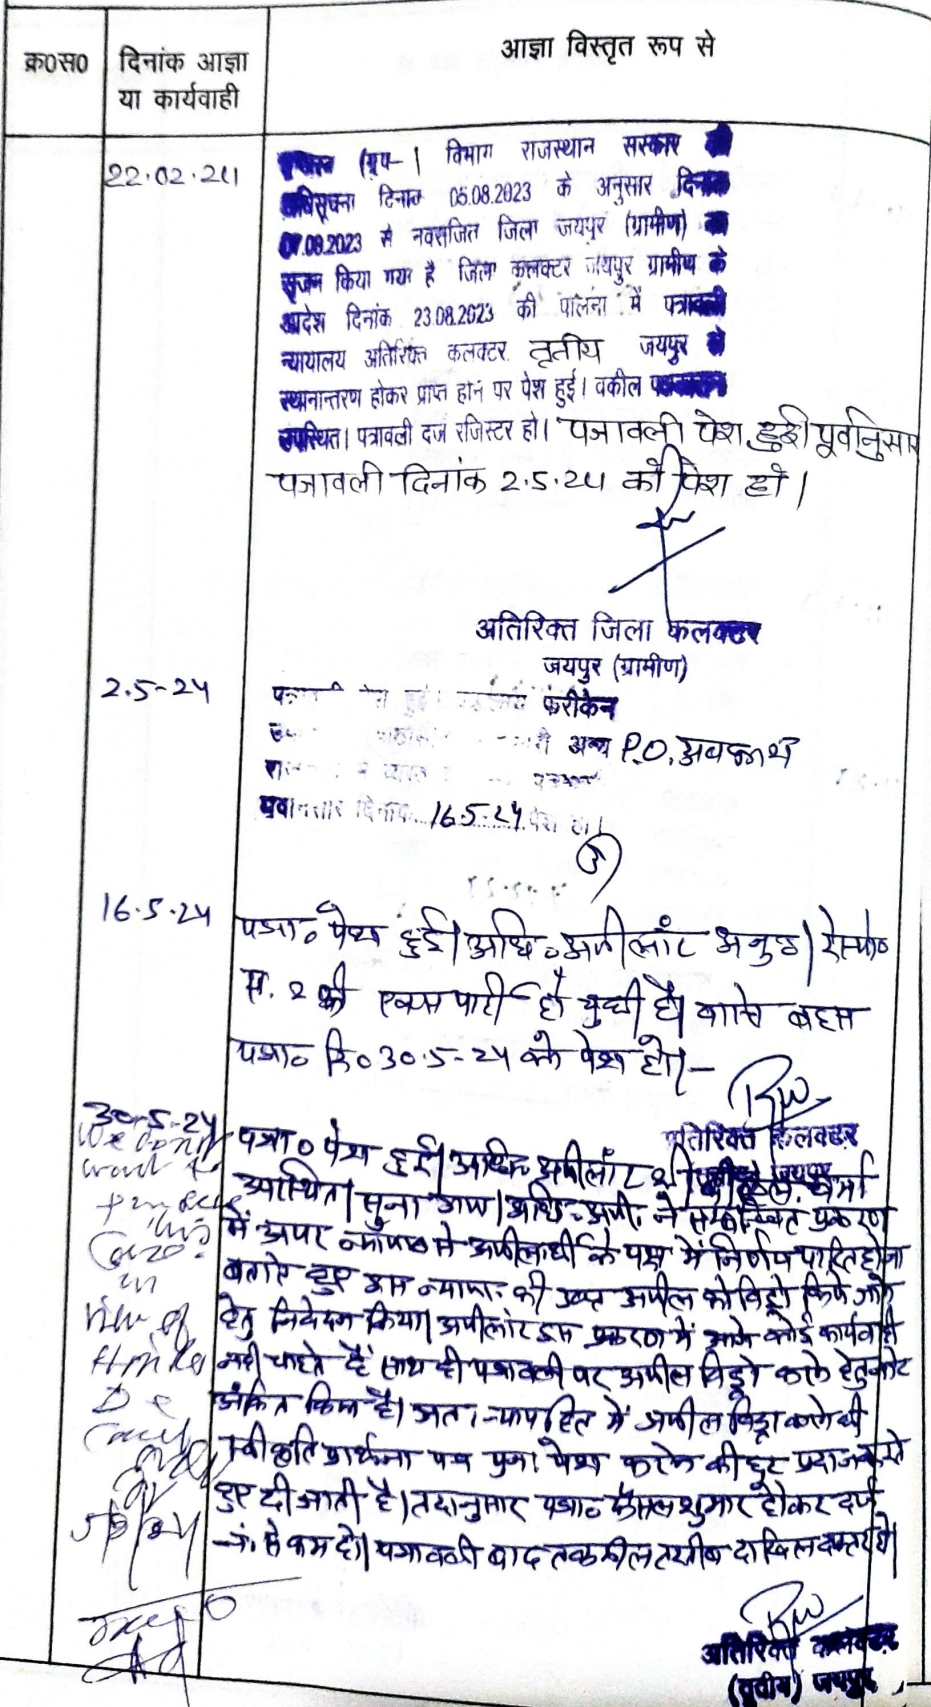 क्र०स०
दिनांक आज्ञा
या कार्यवाही
आज्ञा विस्तृत रूप से
22.02.24
(ग्रुप-1 विभाग राजस्थान सरकार की
अधिसूचना दिनांक 05.08.2023 के अनुसार दिनांक
07.08.2023 से नवसृजित जिला जयपुर (ग्रामीण) का
सृजन किया गया है जिला कलक्टर जयपुर ग्रामीण के
आदेश दिनांक 23.08.2023 की पालना में पत्रावली
न्यायालय अतिरिक्त कलक्टर तृतीय जयपुर से
स्थानान्तरण होकर प्राप्त होने पर पेश हुई। वकील
उपस्थित। पत्रावली दर्ज रजिस्टर हो। पत्रावली पेश हुई। पूर्वानुसार
पत्रावली दिनांक 2.5.24 को पेश हो।
अतिरिक्त जिला कलक्टर
जयपुर (ग्रामीण)
2.5-24
फरीकेन
अन्य P.O. अवकाश
दिनांक 16.5.24 पेश हो।
16.5.24
पत्रा० पेश हुई। अधि० अपीलांट अनु०। रेस्पो०
सं. 2 की एक्स पार्टी हो चुकी है। वास्ते बहस
पत्रा० दि० 30.5-24 को पेश हो।-
अतिरिक्त कलक्टर
जयपुर
30-5-24
पत्रा० पेश हुई। अधि० अपीलांट श्री शर्मा
उपस्थित। सुना गया। अधि. अपी. ने प्रकरण
में अपर न्यायालय से अपीलार्थी के पक्ष में निर्णय पारित होना
बताते हुए इस न्याया. की उक्त अपील को विड्रो किये जाने
हेतु निवेदन किया। अपीलांट इस प्रकरण में आगे कोई कार्यवाही
नहीं चाहते हैं साथ ही पत्रावली पर अपील विड्रो करने हेतु नोट
अंकित किया है। अतः न्यायहित में अपील विड्रा करने की
स्वीकृति प्रार्थना पत्र पुनः पेश करने की छूट प्रदान करते
हुए दी जाती है। तदानुसार पत्रा० फैसल शुमार होकर दर्ज
नं. से कम हो। पत्रावली बाद तकमील तरतीब दाखिल दफ्तर हो।
We don't
want to
this
Case
in
View of
अतिरिक्त कलक्टर
(तृतीय) जयपुर